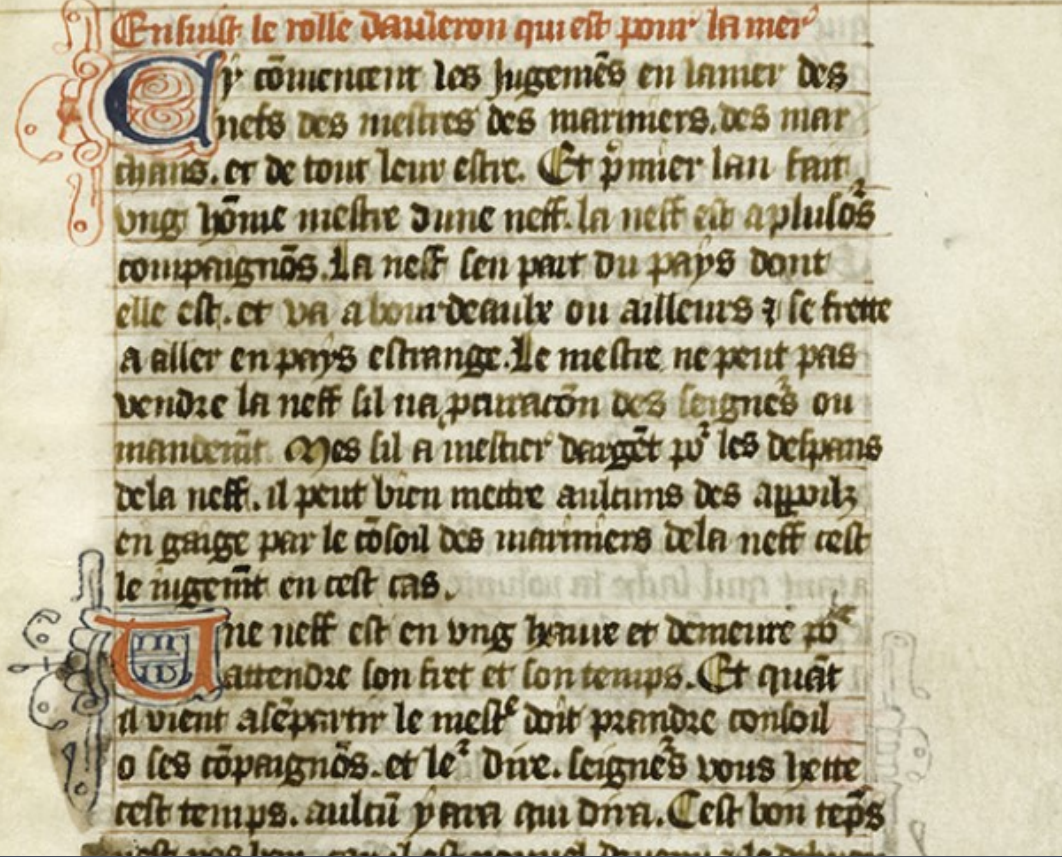 Ensuist le rolle dauleron qui est pour la mer
Cy cōmencent les Jugemēs en lamer des
nefs des mestres des marmiers. des mar
chans. et de tout leur estre. Et p̄mier lan fait
vng hōme mestre dune neff. la neff est a plusōs
compaignōs. La neff sen part du pays dont
elle est. et va a bourdeaulx ou ailleurs ⁊ se frette
a aller en pays estrange. Le mestre ne peut pas
vendre la neff sil na, des seignēs ou
mandem̄t. Mes sil a mestier dargēt po᷑ les despans
dela neff. il peut bien mettre aulcuns des
en gaige par le cōsoil des mariniers dela neff cest
le iugem̄t en cest cas.
Une neff est en vng havre et demeure po᷑
attendre son fret et son temps. Et quāt
il vient a sē partir le mest doit prandre consoil
o ses cōpaignōs. et le᷑ dire. seignēs vous hette
cest temps. aulcū y ara qui dira. Cest bon tēps